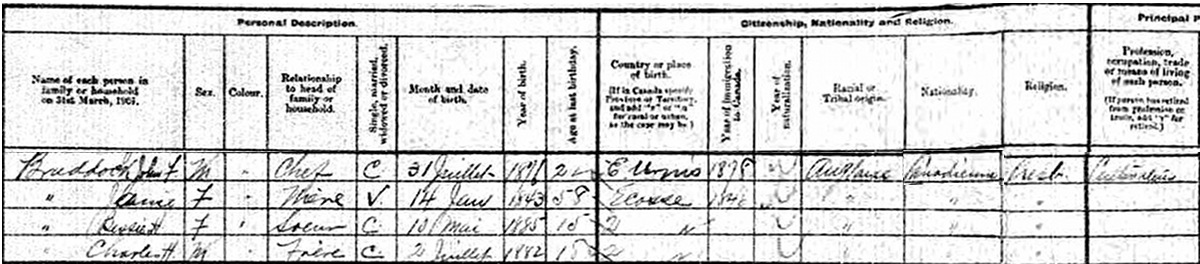 Personal Description. Citizenship, Nationality and Religion. Principal P
Name of each person in family or household on 31st March, 1901.
Sex.
Colour.
Relationship to head of family or household.
Single, married, widowed or divorced.
Month and date of birth.
Year of birth.
Age at last birthday.
Country or place of birth.
(If in Canada specify Province or Territory, and add "r" or "u" for rural or urban, as the case may be.)
Year of immigration to Canada.
Year of naturalization.
Racial or Tribal origin.
Nationality.
Religion.
Profession, occupation, trade or means of living of each person.
(If person has retired from profession or trade, add "r" for retired.)
Braddock John F M " Chef C 31 Juillet E Unis Canadienne Presb.
" Jeanie F " Mère V. 14 Jan 1843 58 Ecosse " "
" F " Soeur C 10 Mai 1885 15 " "
" Charles H. M " Frère C 2 Juillet 1882 " "